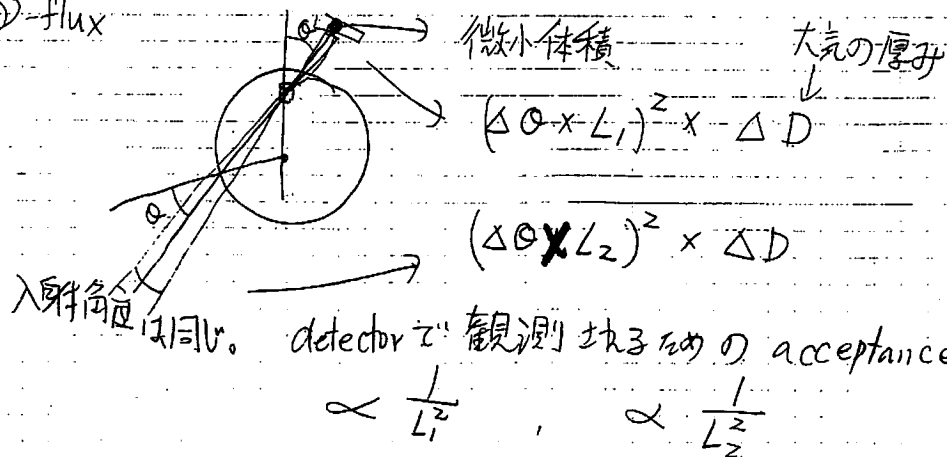 ②-flux
θ
微小体積
大気の厚み
↓
(Δθ×L₁)² × ΔD
(Δθ×L₂)² × ΔD
θ
入射角度は同じ。
detectorで観測されるための acceptance
∝ 1/L₁² , ∝ 1/L₂²